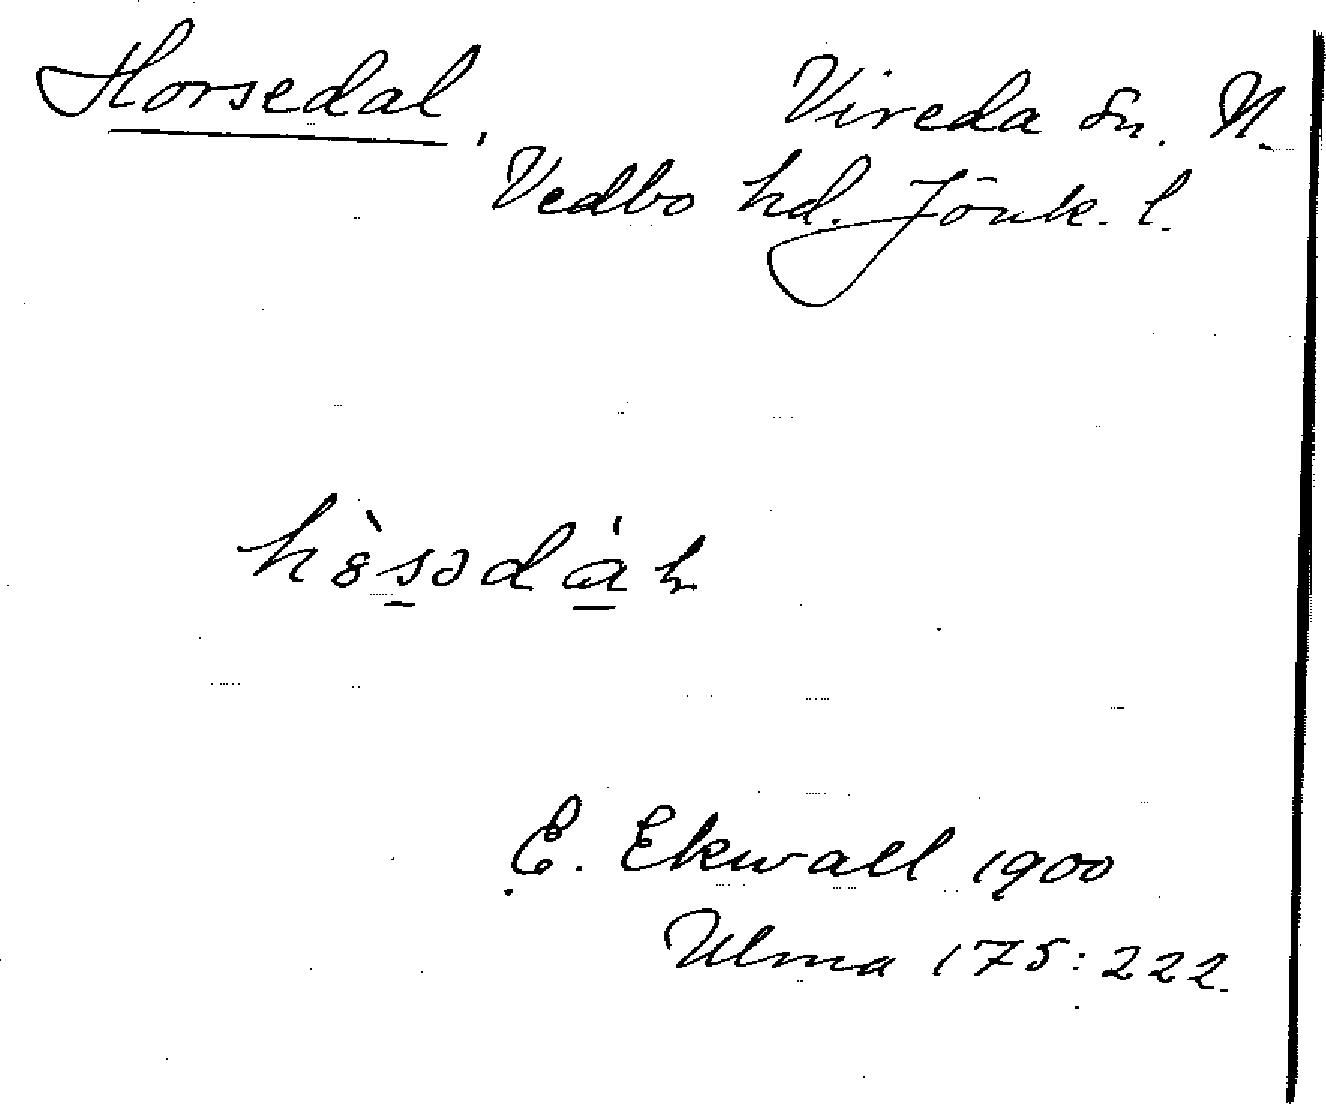 Horsedal, Vireda sn. N.
Vedbo hd. Jönk. l.
hòsədál
E. Ekwall 1900
Ulma 175:222.